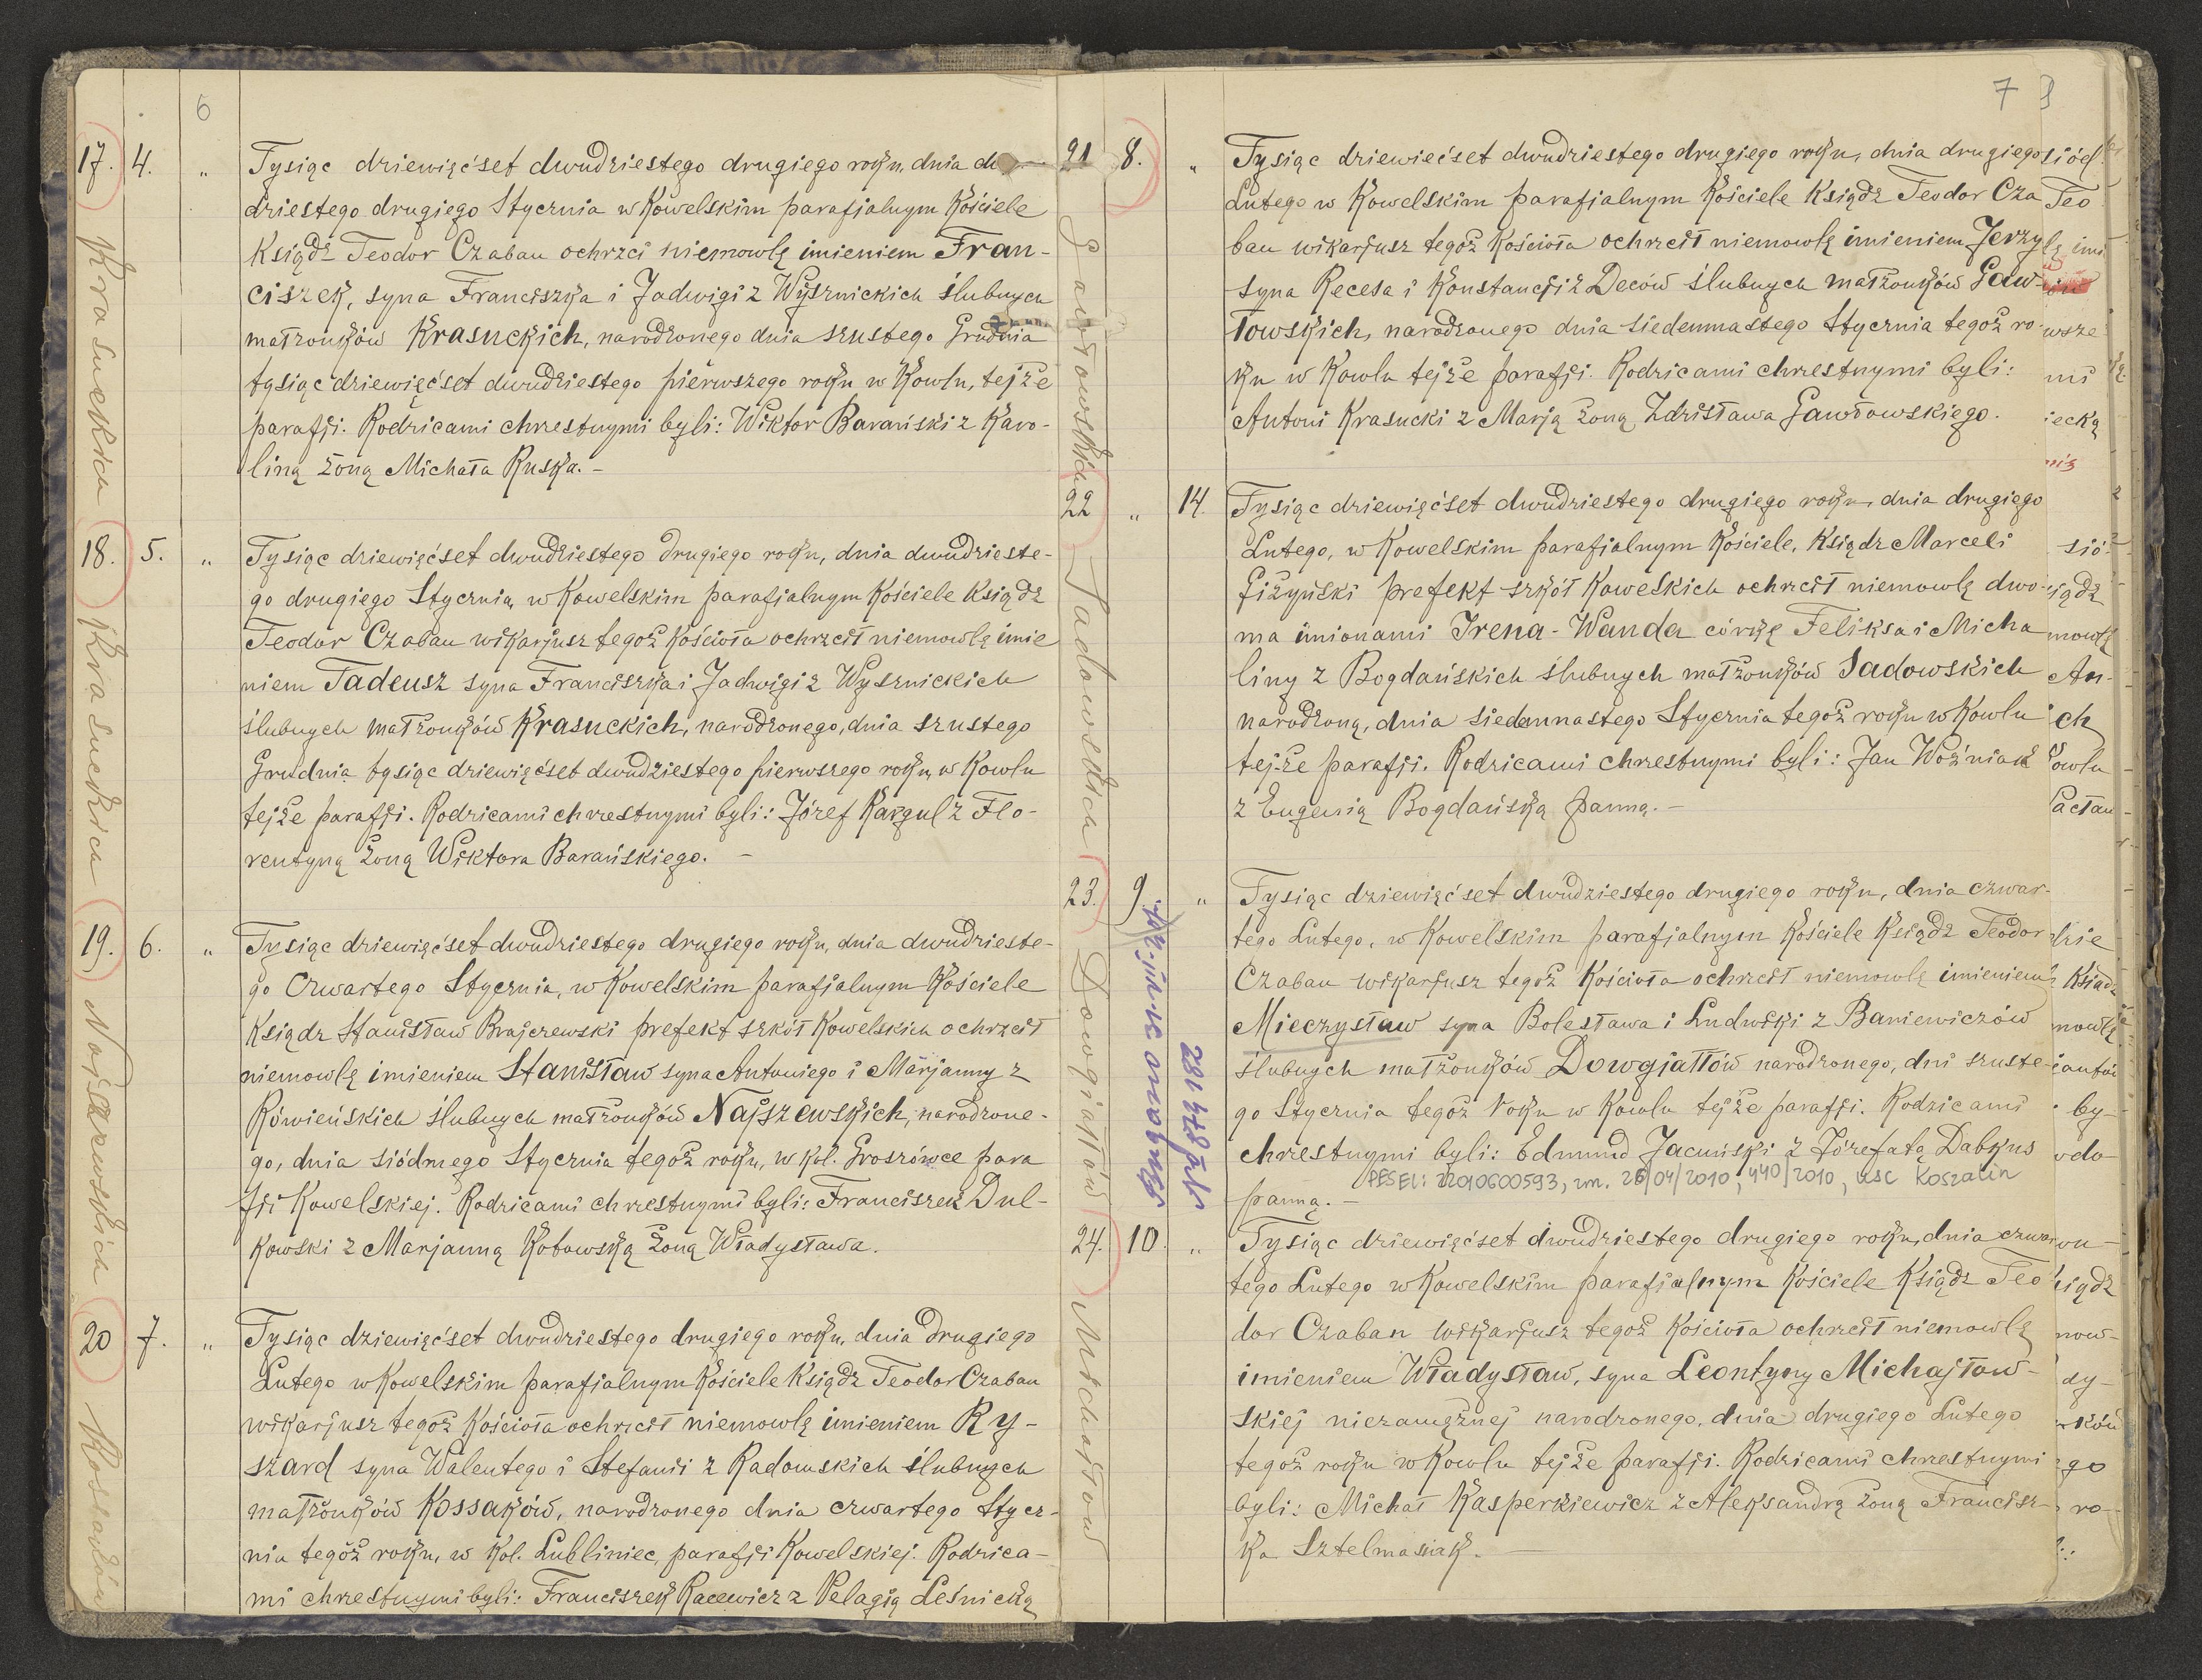 6
17. 4. „ Tysiąc dziewięćset dwudziestego drugiego roku, dnia dw
dziestego drugiego Stycznia w Kowelskim parafjalnym Kościele
Ksiądz Teodor Czaban ochrzci niemowlę imieniem Fran-
ciszek, syna Franciszka i Jadwigi z Wysznickich ślubnych
małżonków Krasuckich, narodzonego dnia szustego Grudnia
tysiąc dziewięćset dwudziestego pierwszego roku w Kowlu, tejże
parafji. Rodzicami chrzestnymi byli: Wiktor Barański z Karo-
liną żoną Michała Ruska.-
Krasuckich
18. 5. „ Tysiąc dziewięćset dwudziestego drugiego roku, dnia dwudzieste-
go drugiego Stycznia, w Kowelskim parafjalnym Kościele Ksiądz
Teodor Czaban wikarjusz tegoż Kościoła ochrzcił niemowlę imie
niem Tadeusz syna Franciszka i Jadwigi z Wysznickich
ślubnych małżonków Krasuckich, narodzonego, dnia szustego
Grudnia tysiąc dziewięćset dwudziestego pierwszego roku, w Kowlu
tejże parafji. Rodzicami chrzestnymi byli: Józef Kargul z Flo-
rentyną żoną Wiktora Barańskiego. -
Krasuckich
19. 6. „ Tysiąc dziewięćset dwudziestego drugiego roku, dnia dwudzieste-
go Czwartego Stycznia, w Kowelskim parafjalnym Kościele
Ksiądz Stanisław Brajczewski prefekt szkół Kowelskich ochrzcił
niemowlę imieniem Stanisław syna Antoniego i Marjanny z
Rówieńskich ślubnych małżonków Najszewskich, narodzone-
go, dnia siódmego Stycznia tegoż roku, w kol. Groszówce para
fji Kowelskiej. Rodzicami chrzestnymi byli: Franciszek Dul-
kowski z Marjanną Kotowską żoną Władysława.
Najszewskich
20 7. „ Tysiąc dziewięćset dwudziestego drugiego roku, dnia drugiego
Lutego w Kowelskim parafjalnym Kościele Ksiądz Teodor Czaban
wikarjusz tegoż Kościoła ochrzcił niemowlę imieniem Ry-
szard syna Walentego i Stefanii z Radomskich ślubnych
małżonków Kossaków, narodzonego dnia czwartego Stycz-
nia tegoż roku, w kol. Lubliniec, parafji Kowelskiej. Rodzica-
mi chrzestnymi byli: Franciszek Racewicz z Pelagią Leśnicką
Kossaków
7
21 8. „ Tysiąc dziewiećset dwudziestego drugiego roku, dnia drugiego
Lutego w Kowelskim parafjalnym Kościele Ksiądz Teodor Cza
ban wikarjusz tegoż Kościoła ochrzcił niemowlę imieniem Jerzy
syna Recesa i Konstancji z Deców ślubnych małżonków Gaw-
łowskich, narodzonego dnia siedemnastego Stycznia tegoż ro-
ku w Kowlu tejże parafji. Rodzicami chrzestnymi byli:
Antoni Krasucki z Marją żoną Zdzisława Gawłowskiego.
Gawłowskich
22 „ 14. Tysiąc dziewięćset dwudziestego drugiego roku, dnia drugiego
Lutego, w Kowelskim parafjalnym Kościele, Ksiądz Marceli
Giżyński prefekt szkół Kowelskich ochrzcił niemowlę dwo-
ma imionami Irena-Wanda córkę Feliksa i Micha
liny z Bogdańskich ślubnych małżonków Sadowskich
narodzoną, dnia siedemnastego Stycznia tegoż roku w Kowlu
tejże parafji. Rodzicami chrzestnymi byli: Jan Woźniak
z Eugenią Bogdańską panną. -
Sadowskich
23. 9. „ Tysiąc dziewięćset dwudziestego drugiego roku, dnia czwar-
tego Lutego, w Kowelskim parafjalnym Kościele Ksiądz Teodor
Czaban wikarjusz tegoż Kościoła ochrzcił niemowlę imieniem
Mieczysław syna Bolesława i Ludwiki z Baniewiczów
ślubnych małżonków Dowgiałłów narodzonego, dni szuste-
go Stycznia tegoż roku w Kowlu tejże parafji. Rodzicami
chrzestnymi byli: Edmund Jacuński z Józefatą Dabkus
PESEL: 22010600593, zm. 26/04/2010, 440/2010, USC Koszalin
panną. -
Dowgiałłów
24. 10. „ Tysiąc dziewięćset dwudziestego drugiego roku, dnia czwar
tego Lutego w Kowelskim parafjalnym Kościele Ksiądz Teo
dor Czaban wikarjusz tegoż Kościoła ochrzcił niemowlę
imieniem Władysław, syna Leontyny Michajłow-
skiej niezamężnej narodzonego, dnia drugiego Lutego
tegoż roku w Kowlu tejże parafji. Rodzicami chrzestnymi
byli: Michał Kasperkiewicz z Aleksandrą żoną Francisz-
ka Sztelmasiak. -
Michajłow